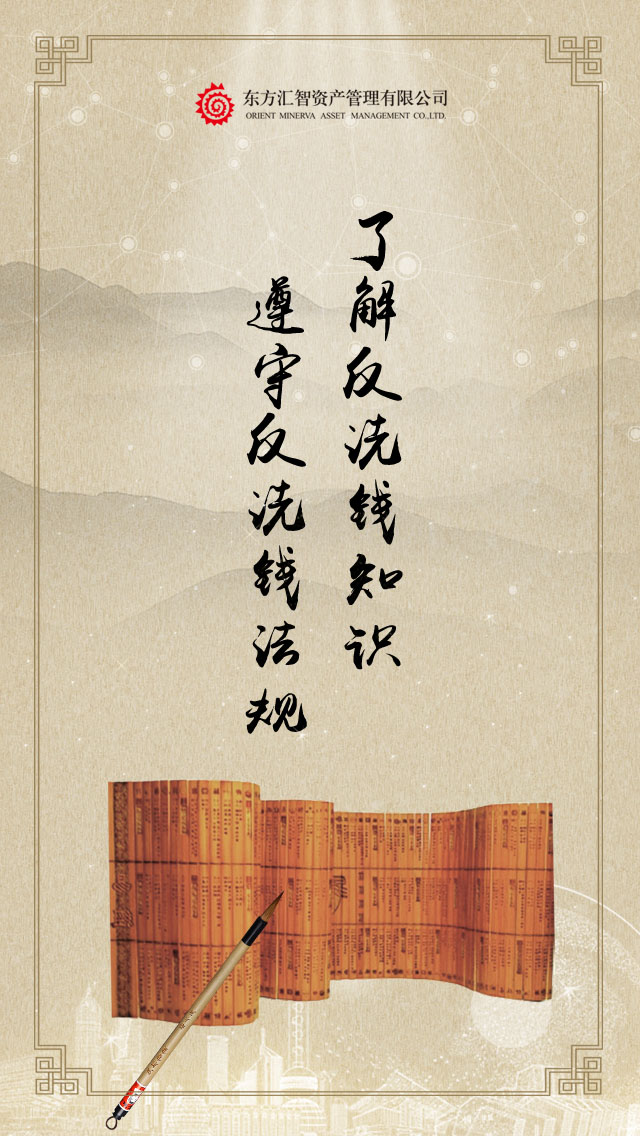 东方汇智资产管理有限公司
ORIENT MINERVA ASSET MANAGEMENT CO.,LTD.
了解反洗钱知识
遵守反洗钱法规